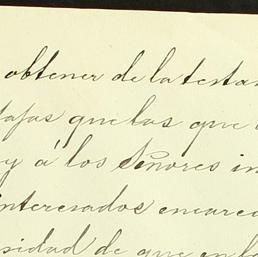 obtener de la testa
tajas que las que
y á los Señores in
interesados encarec
sidad de que en lo